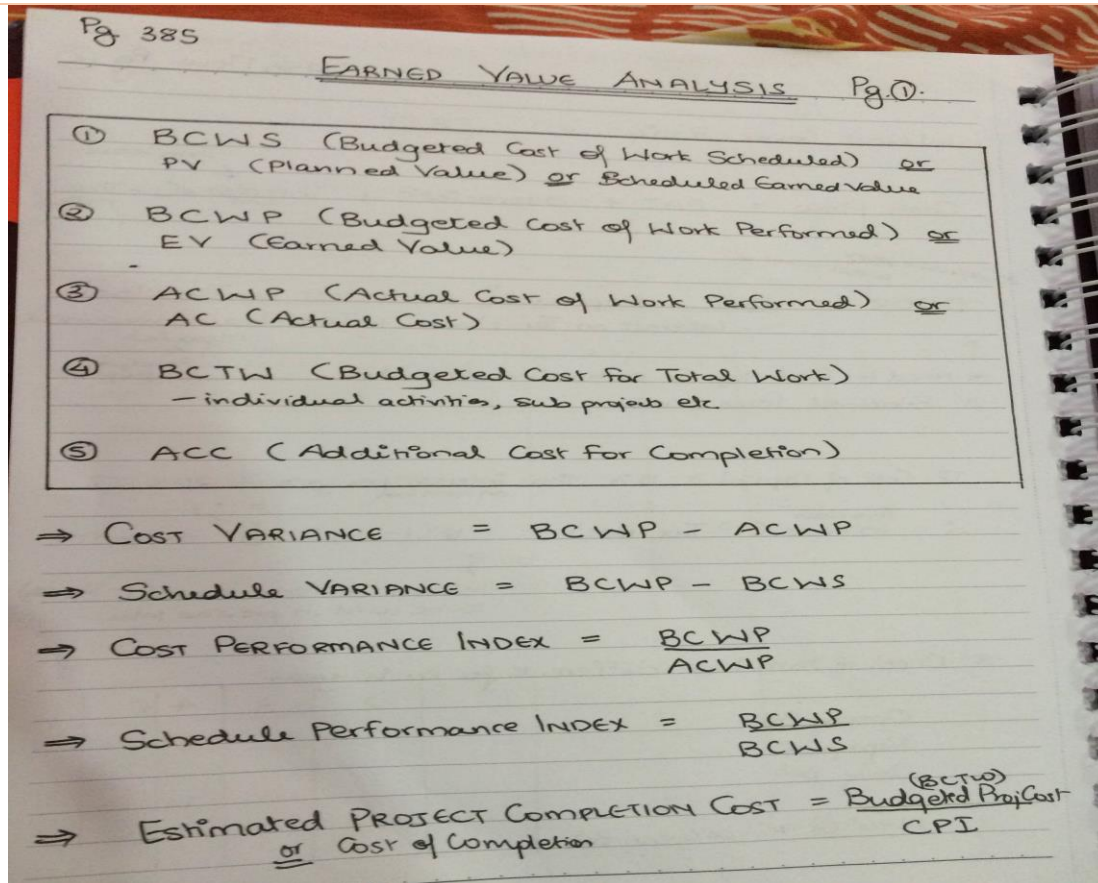 Pg 385
EARNED VALUE ANALYSIS Pg.①.
① BCWS (Budgeted Cost of Work Scheduled) or
PV (Planned Value) or Scheduled Earned Value
② BCWP (Budgeted Cost of Work Performed) or
EV (Earned Value)
③ ACWP (Actual Cost of Work Performed) or
AC (Actual Cost)
④ BCTW (Budgeted Cost for Total Work)
- individual activities, sub projects etc
⑤ ACC (Additional Cost for Completion)
⇒ COST VARIANCE = BCWP - ACWP
⇒ Schedule VARIANCE = BCWP - BCWS
⇒ COST PERFORMANCE INDEX = BCWP
ACWP
⇒ Schedule Performance INDEX = BCWP
BCWS
(BCTW)
⇒ Estimated PROJECT COMPLETION COST = Budgeted Proj Cost
or Cost of Completion CPI